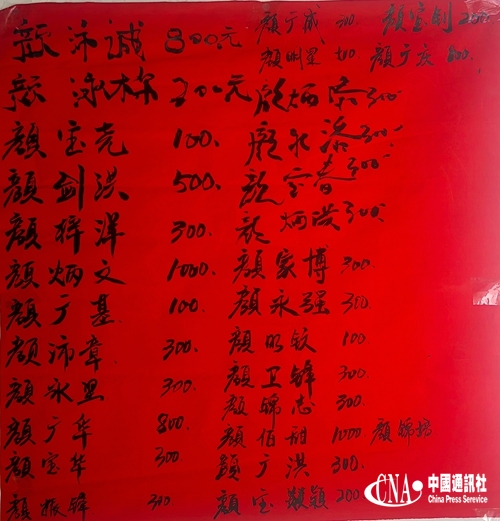 颜沛诚 800元 颜广威 300 颜宝剑 200
颜明星 300 颜广亥 800.
颜 泳棉 200元 颜炳宗 300
颜宝尧 100. 颜永洛 300.
颜剑洪 500. 颜宝春 300.
颜择洋 300. 颜炳洪 300
颜炳文 1000. 颜家博 300.
颜广基 100. 颜永强 300.
颜沛章 300. 颜明钦 100
颜永星 300. 颜卫锋 300.
颜广华 800 颜锦志 300.
颜宝华 300 颜伯甜 1000 颜锦扬
颜振锋 300 颜广洪 300.
颜宝 颖 200
CNA 中國通訊社
China Press Serevice